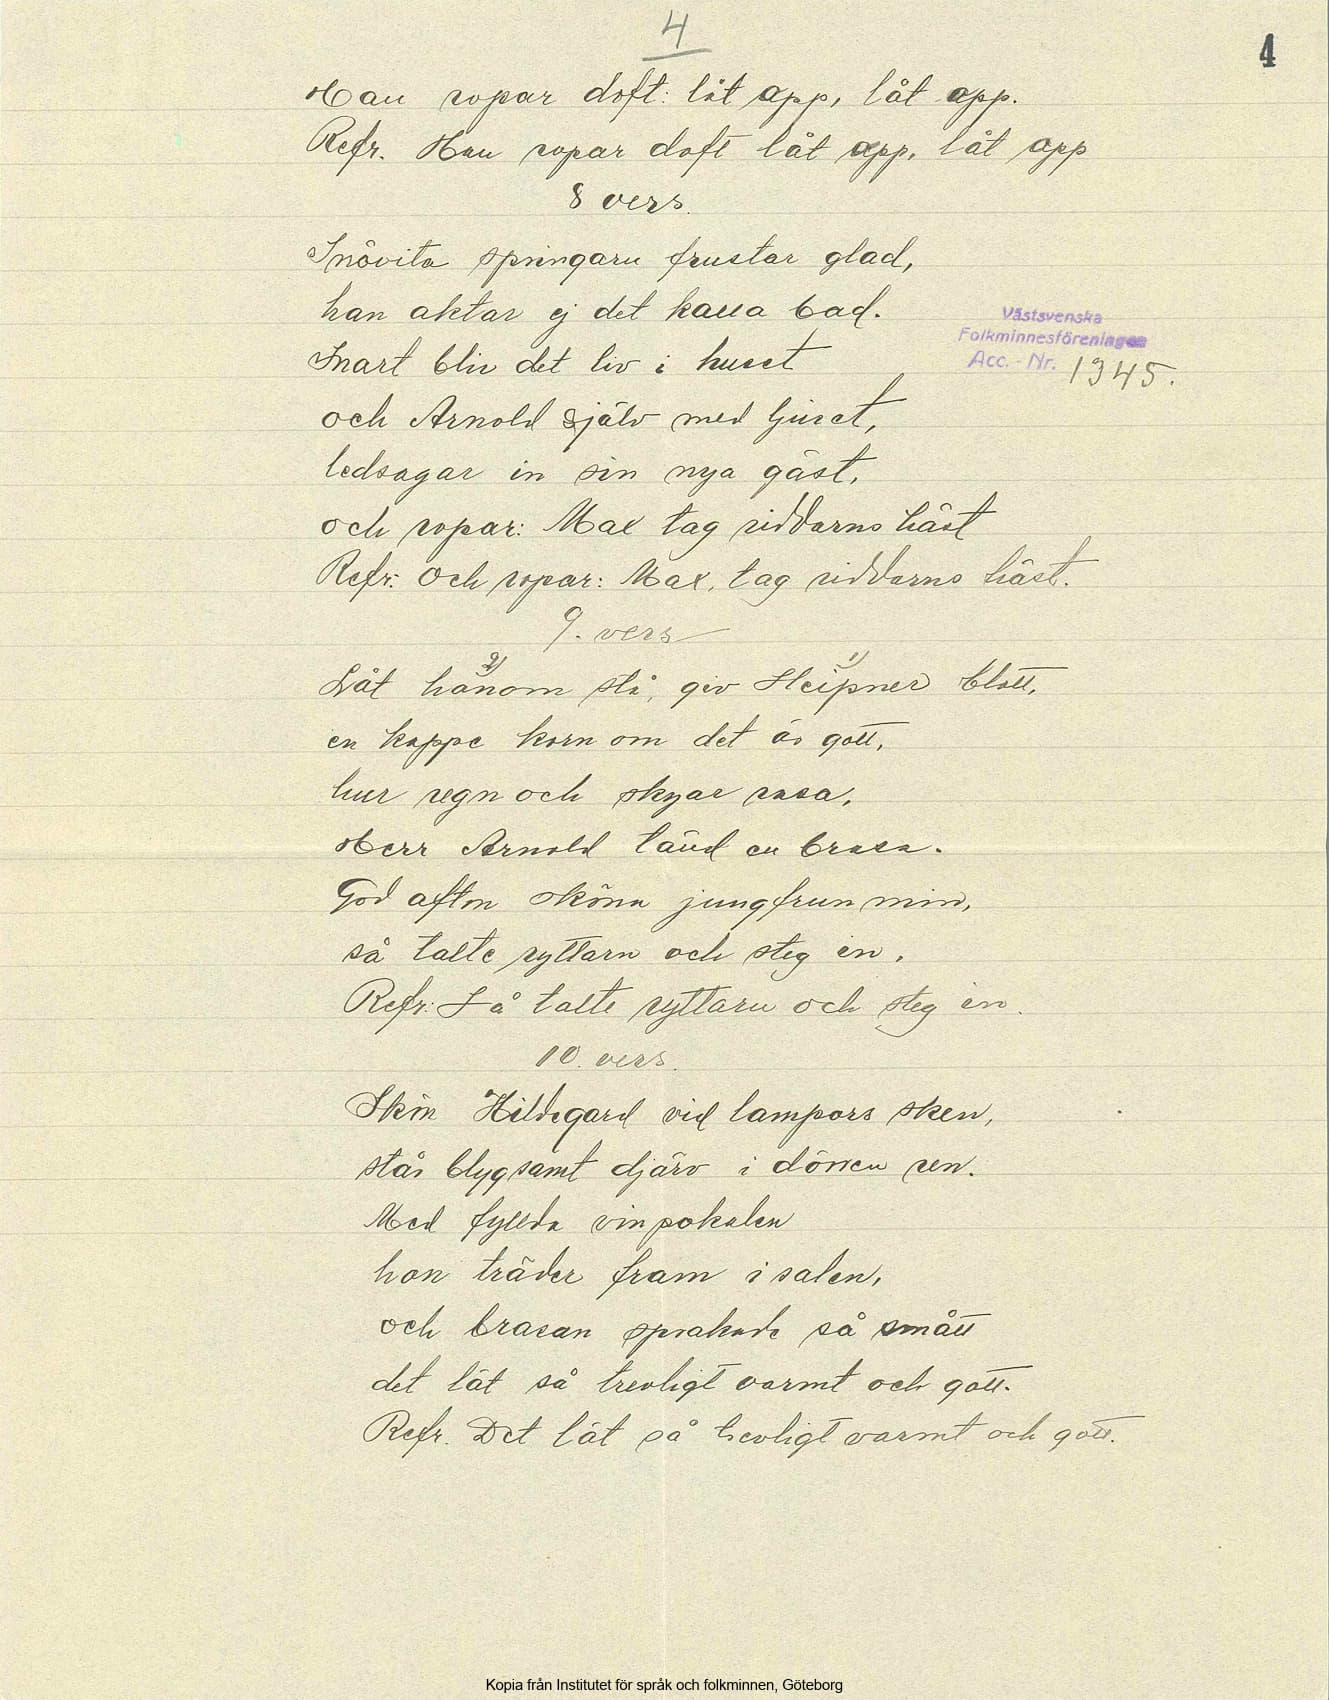 4
4
Han ropar doft: låt opp, låt opp.
Refr. Han ropar doft låt opp, låt opp
8 vers.
Snövita springarn frustar glad,
han aktar ej det kalla bad.
Snart bliv det liv i huset
och Arnold själv med ljuset,
ledsagar in sin nya gäst,
och ropar: Max tag riddarns häst
Refr: Och ropar: Max, tag riddarns häst.
9. vers
2) 1)
Låt honom stå, giv Sleipner blott,
en kappe korn om det är gott,
hur regn och skyar rasa,
Herr Arnold tänd en brasa.
God afton sköna jungfrun min,
så talte ryttarn och steg in.
Refr: Så talte ryttarn och steg in.
10. vers.
Skön Hildegard vid lampors sken,
står blygsamt djärv i dörren ren.
Med fyllda vinpokalen
hon träder fram i salen,
och brasan sprakade så smått
det lät så trevligt varmt och gott.
Refr. Det lät så trevligt varmt och gott.
Västsvenska
Folkminnesföreningen
Acc. - Nr. 1945.
Kopia från Institutet för språk och folkminnen, Göteborg